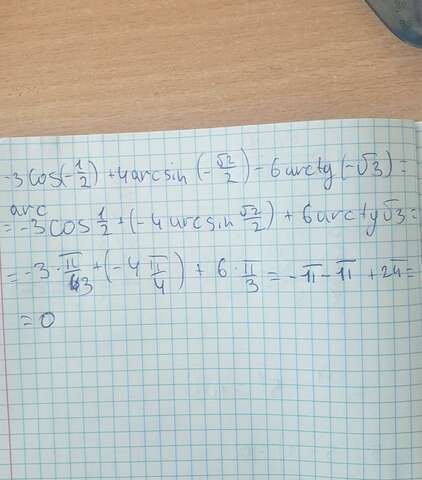 -3cos(-1/2) + 4arcsin(-√2/2) - 6arctg(-√3) =
arc
= -3cos 1/2 + (-4arcsin √2/2) + 6arctg√3 =
= -3 · π/3 + (-4 π/4) + 6 · π/3 = -π - π + 2π =
= 0